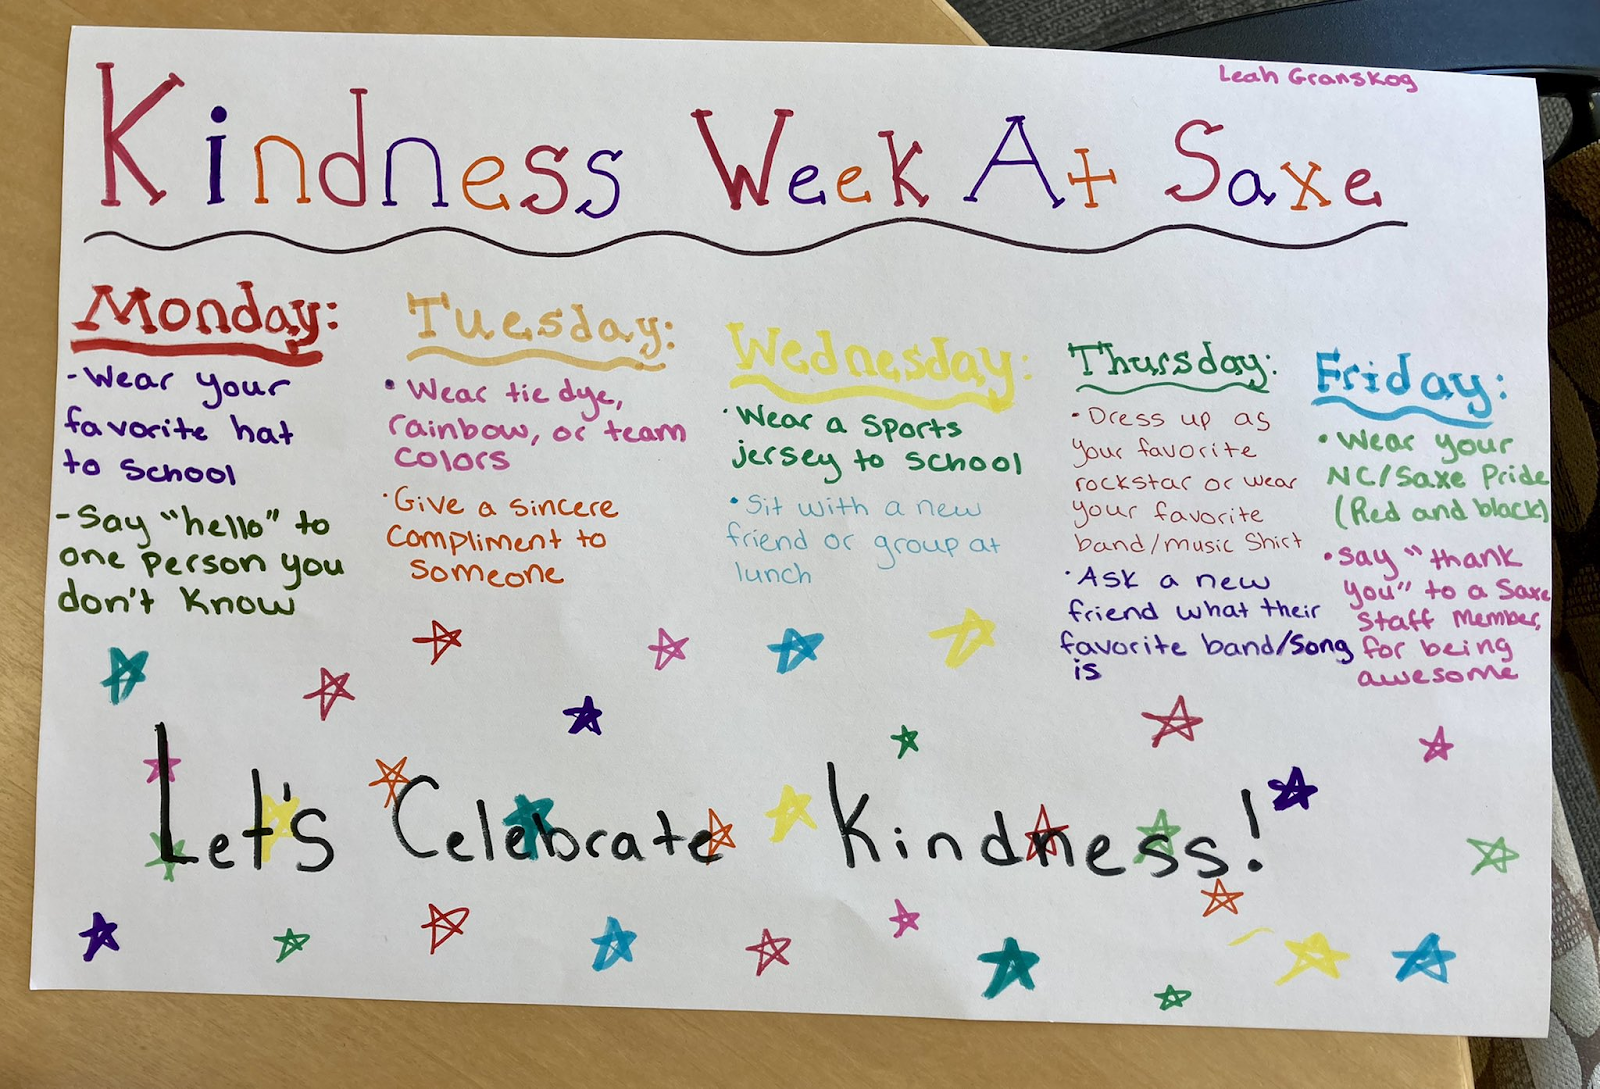 Leah Granskog
Kindness Week At Saxe
Monday:
-Wear your
favorite hat
to School
-Say "hello" to
one person you
don't know
Tuesday:
• Wear tie dye,
rainbow, or team
colors
• Give a sincere
compliment to
someone
Wednesday:
• Wear a sports
jersey to school
• Sit with a new
friend or group at
lunch
Thursday:
• Dress up as
your favorite
rockstar or wear
your favorite
band/music Shirt
• Ask a new
friend what their
favorite band/song
is
Friday:
• Wear your
NC/Saxe Pride
(Red and black)
• Say "thank
you" to a Saxe
Staff Member,
for being
awesome
Let's Celebrate Kindness!